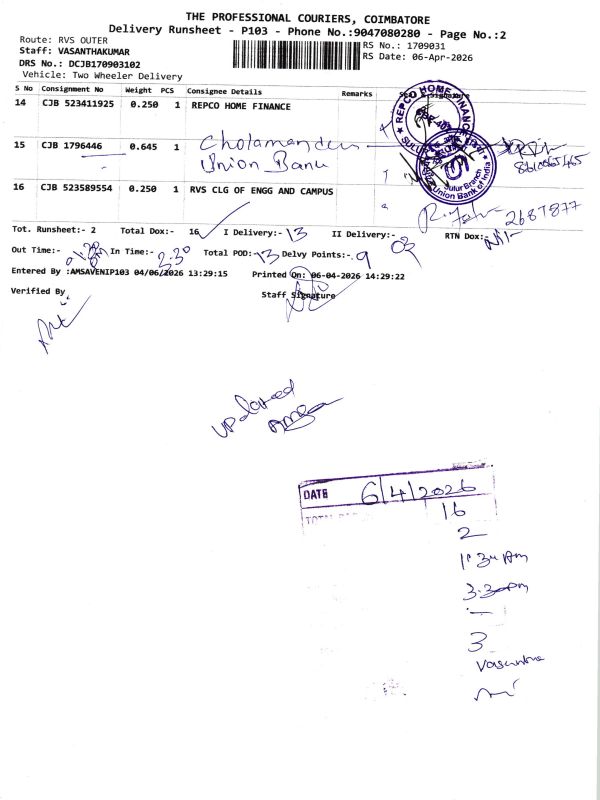 THE PROFESSIONAL COURIERS, COIMBATORE
Delivery Runsheet - P103 - Phone No.:9047080280 - Page No.:2
Route: RVS OUTER
Staff: VASANTHAKUMAR
DRS No.: DCJB170903102
Vehicle: Two Wheeler Delivery
RS No.: 1709031
RS Date: 06-Apr-2026
S No Consignment No Weight PCS Consignee Details Remarks
14 CJB 523411925 0.250 1 REPCO HOME FINANCE
REPCO HOME FINANCE
SULUR
15 CJB 1796446 0.645 1 Cholamandu
Union Bank
Sulur Branch
Union Bank of India
16 CJB 523589554 0.250 1 RVS CLG OF ENGG AND CAMPUS
2687877
Tot. Runsheet:- 2 Total Dox:- 16 I Delivery:- 13 II Delivery:- 03 RTN Dox:- Nil
Out Time:- In Time:- Total POD:- 13 Delvy Points:- 9
Entered By :AMSAVENIP103 04/06/2026 13:29:15 Printed On: 06-04-2026 14:29:22
Verified By Staff Signature
updated
DATE 6/4/2026
16
2
3